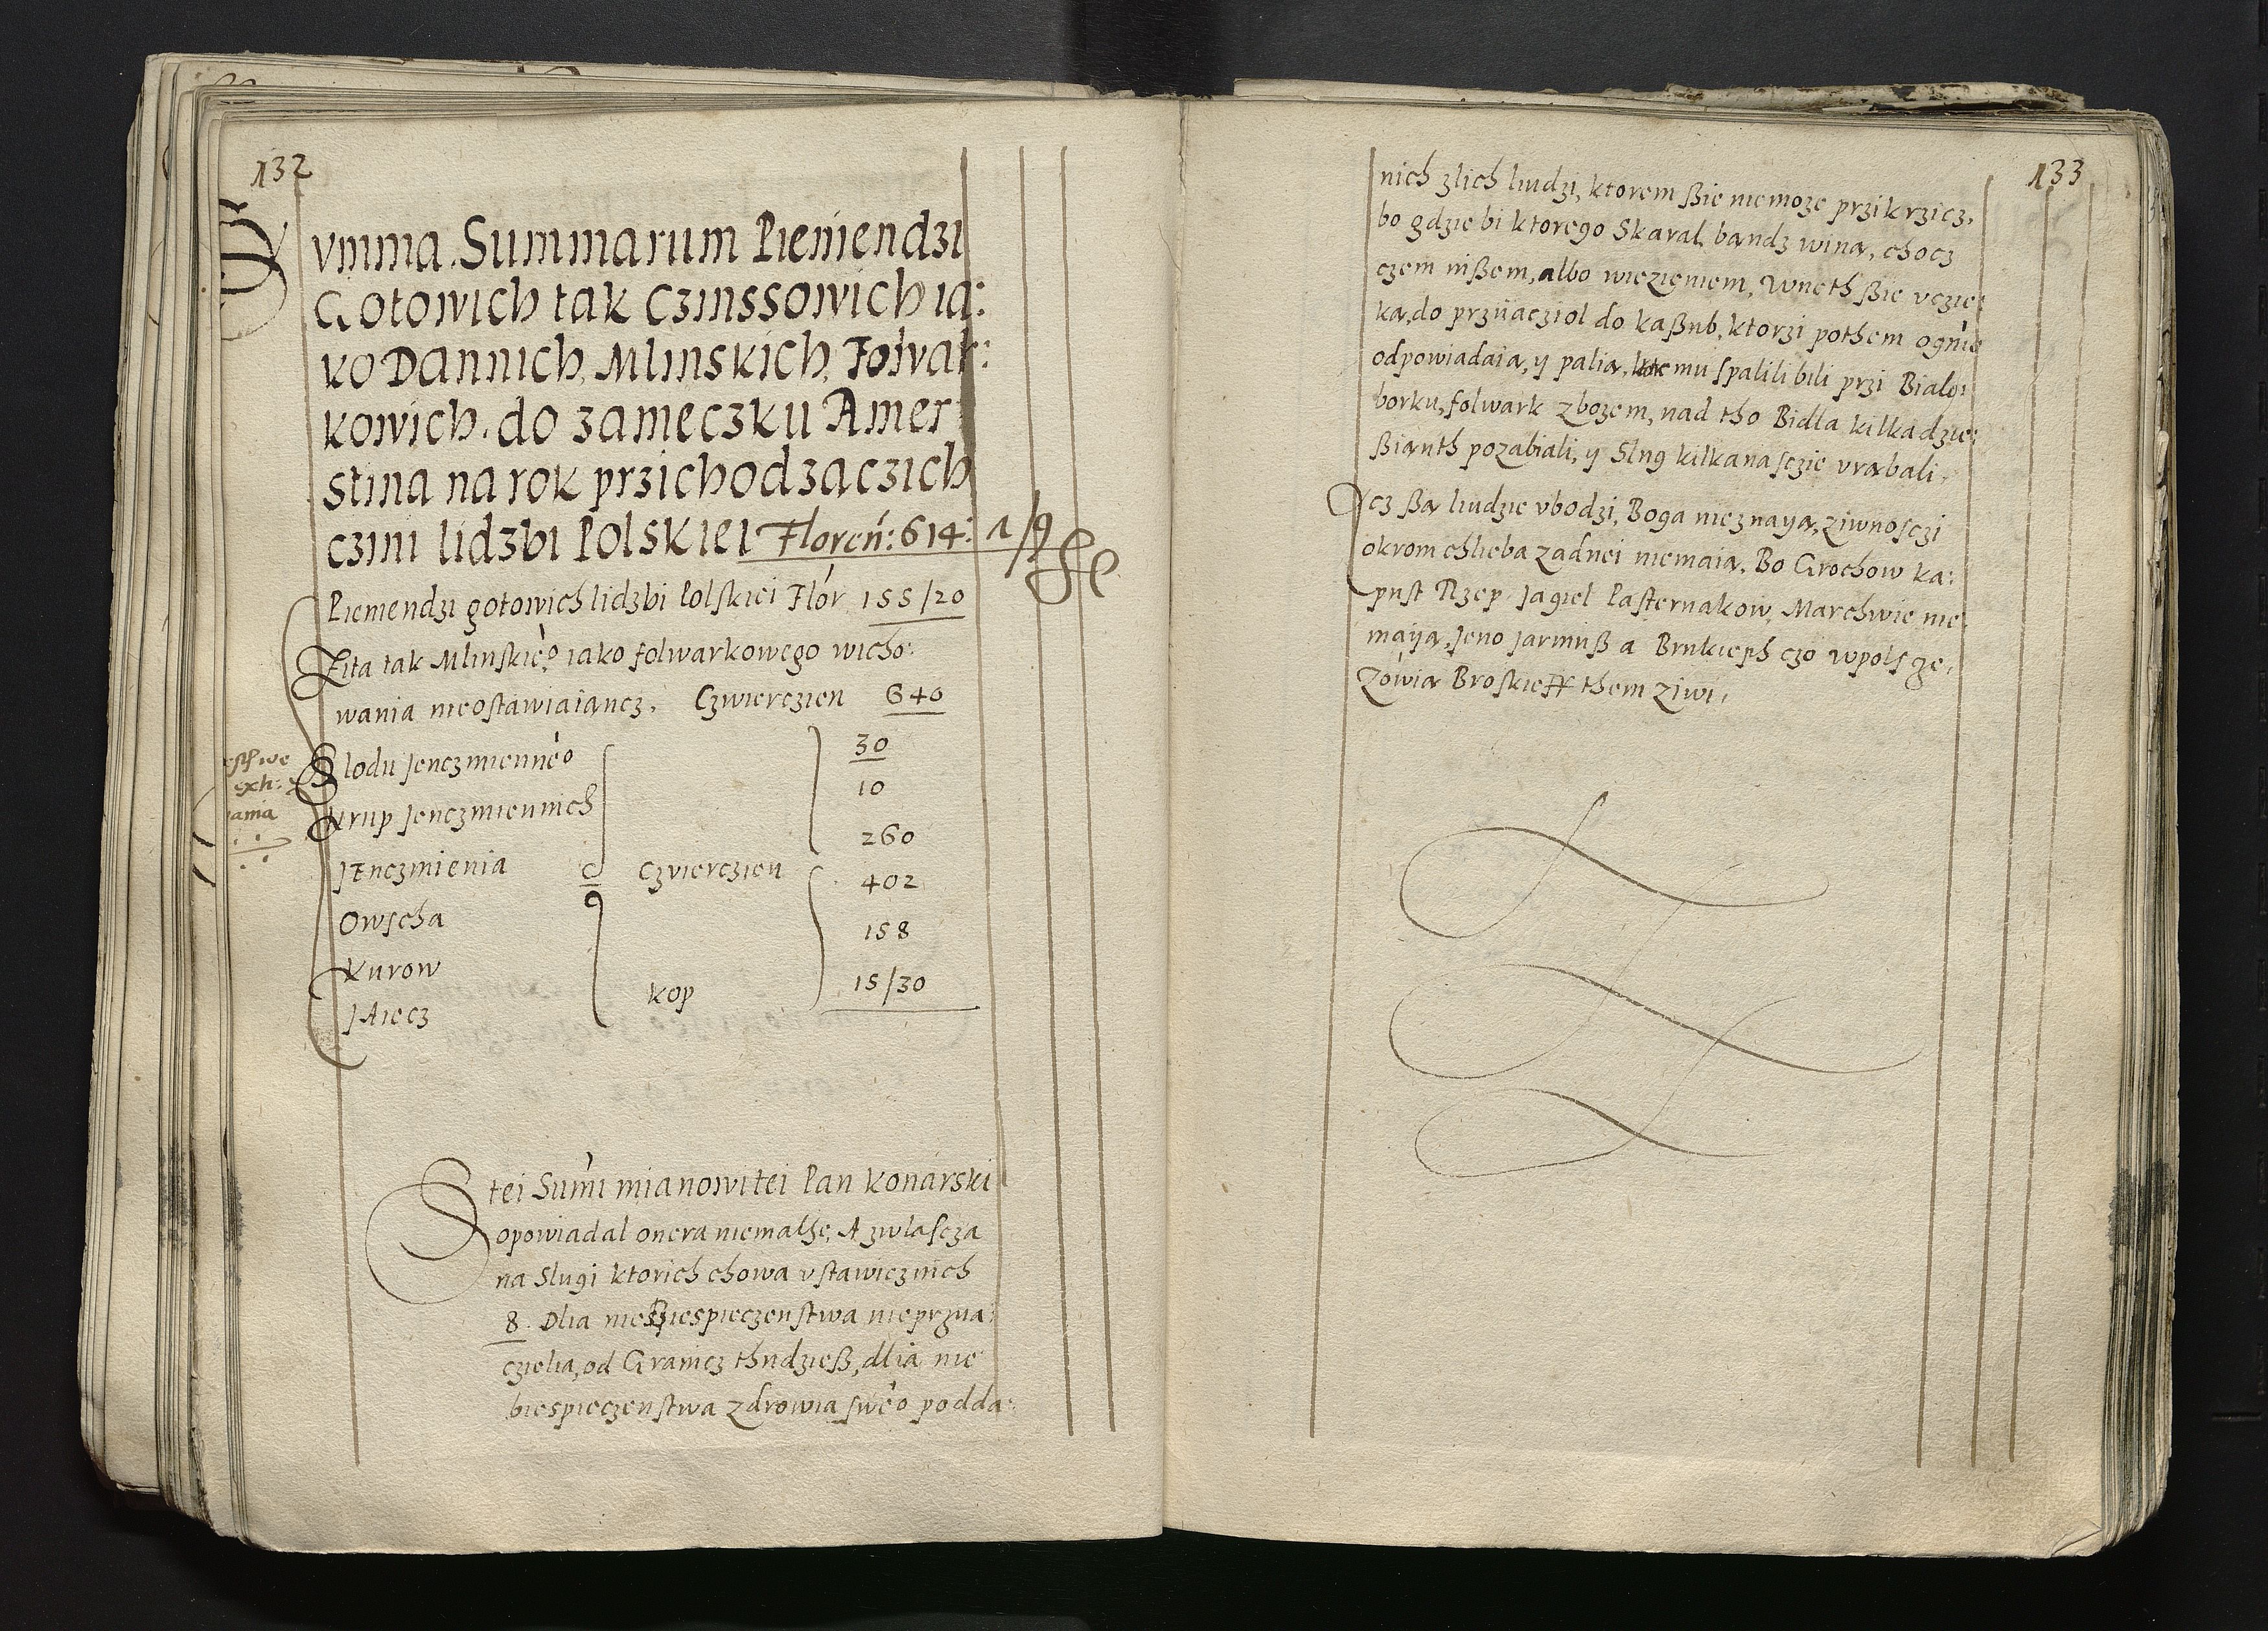 132
Summa Summarum Pieniendzi
Gotowich tak Czinssowich ia:
ko Dannich, Mlinskich, Folvar:
kowich. do zameczku Amer
stina na rok przichodzaczich
czini lidzbi Polskiei Floreń: 614: 1/9
Pieniendzi gotowich lidzbi Polskiei Flór 155/20
Zita tak Mlinskie͛o iako folwarkowego wicho:
wania nieostawiaiancz. Czwierczien 640
Slodu Jenczmienne͛o 30
Krup Jenczmiennich 10
JEnczmienia Czvierczien 260
Owscha 402
Kurow 158
JAiecz kop 15/30
Stei Sum̄i mianowitei Pan Konarski
opowiadal onera niemalhe, A zwlascza
na Slugi ktorich chowa vstawicznich
8. Dlia niesbiespieczenstwa nieprzia:
czielia, od Granicz thudzieß, dlia nie
biespieczenstwa zdrowia swe͛o podda:
133
nich zlich liudzi, ktorem ßie niemoze przikrzicz,
bo gdzie bi ktorego Skaral bandz wina, chocz
czem nißem, albo wiezieniem, Wneth ßie vczie:
ka, do prziiacziol do kaßub, ktorzi pothem ognie
odpowiadaia, y palia, mu spalili bili przi Bialoi
borku, folwark zbozem, nad tho Bidla kilkadzie:
ßianth pozabiali, y Slug kilkanasczie vrabali.
Acz ßa liudzie vbodzi, Boga nieznaya, ziwnosczi
okrom chlieba zadnei niemaia. Bo Grochow ka:
pust Rzep Jagiel Pasternakow, Marchwie nie
maiya, Jeno Jarmuß a Brukieph czo wpolscze,
Zówia Broskieff them ziwi.